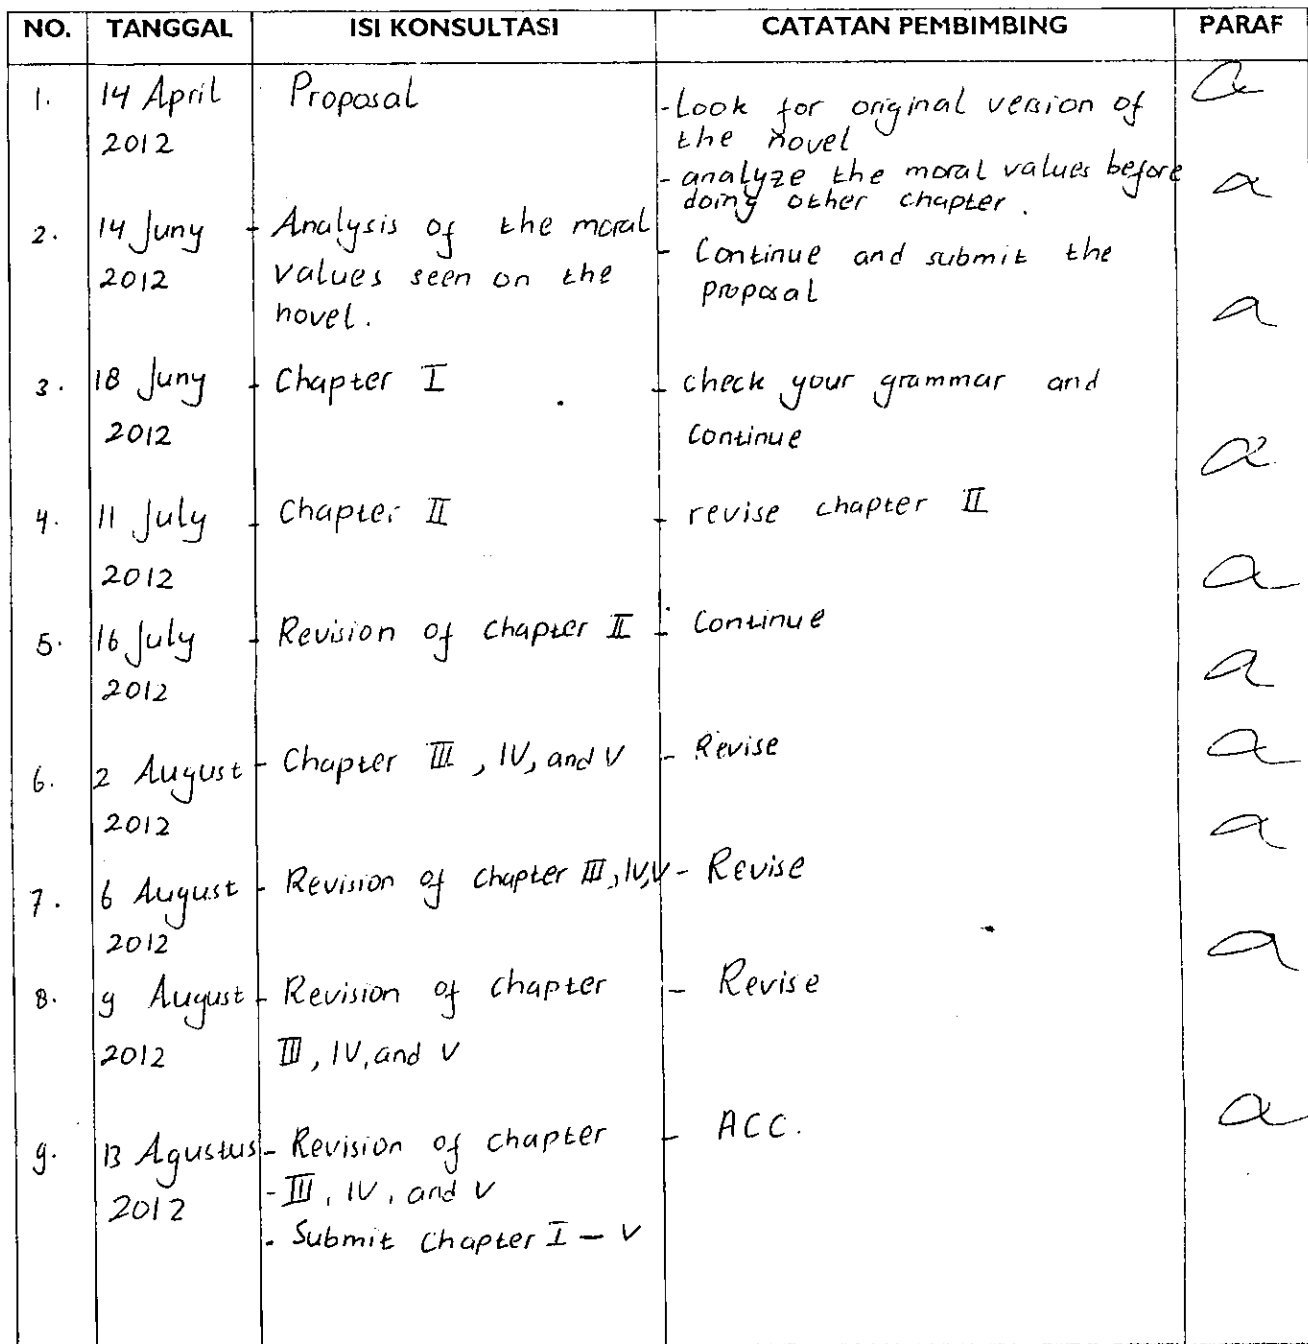 NO. TANGGAL ISI KONSULTASI CATATAN PEMBIMBING PARAF
1. 14 April 2012 Proposal
- Look for original version of
the novel
- analyze the moral values before
doing other chapter.
2. 14 Juny 2012
- Analysis of the moral
values seen on the
novel.
- Continue and submit the
proposal
3. 18 Juny 2012
- Chapter I
- check your grammar and
continue
4. 11 July 2012
- Chapter II
- revise chapter II
5. 16 July 2012
- Revision of chapter II
- Continue
6. 2 August 2012
- Chapter III, IV, and V
- Revise
7. 6 August 2012
- Revision of chapter III, IV, V
- Revise
8. 9 August 2012
- Revision of chapter
III, IV, and V
- Revise
9. 13 Agustus 2012
- Revision of chapter
- III, IV, and V
- Submit Chapter I – V
- ACC.